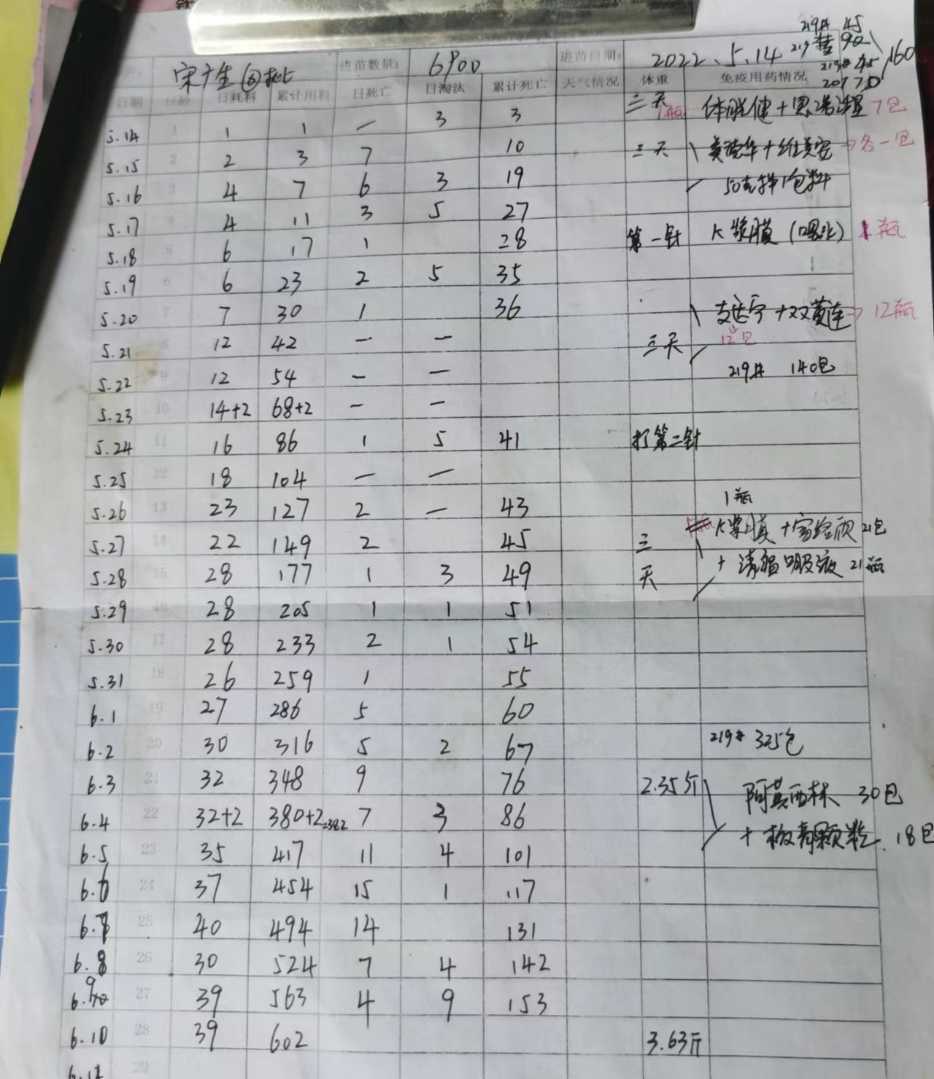 219# 45
219 90
213# 45
160
宋广生 进苗数量: 6900 进苗日期: 2022.5.14
日期 日龄 日耗料 累计用料 日死亡 日淘汰 累计死亡 天气情况 体重 免疫用药情况
5.14 1 1 1 — 3 3 三天 7包
5.15 2 2 3 7 10 三天 各一包
5.16 3 4 7 6 3 19
5.17 4 4 11 3 5 27
5.18 5 6 17 1 28 第一针 K浆膜 1瓶
5.19 6 6 23 2 5 35
5.20 7 7 30 1 36 +双黄连 12瓶
5.21 8 12 42 — — 三天 12包
5.22 9 12 54 — — 219# 140包
5.23 10 14+2 68+2 — —
5.24 11 16 86 1 5 41 打第二针
5.25 12 18 104 — —
5.26 13 23 127 2 — 43 1瓶
5.27 14 22 149 2 45 三 K浆膜+ 21包
5.28 15 28 177 1 3 49 天 + 21瓶
5.29 16 28 205 1 1 51
5.30 17 28 233 2 1 54
5.31 18 26 259 1 55
6.1 19 27 286 5 60
6.2 20 30 316 5 2 67 219# 325包
6.3 21 32 348 9 76 2.35斤 阿莫西林 30包
6.4 22 32+2 380+2=382 7 3 86 +板青颗粒 18包
6.5 23 35 417 11 4 101
6.6 24 37 454 15 1 117
6.7 25 40 494 14 131
6.8 26 30 524 7 4 142
6.9 27 39 563 4 9 153
6.10 28 39 602 3.63斤
6.11 29